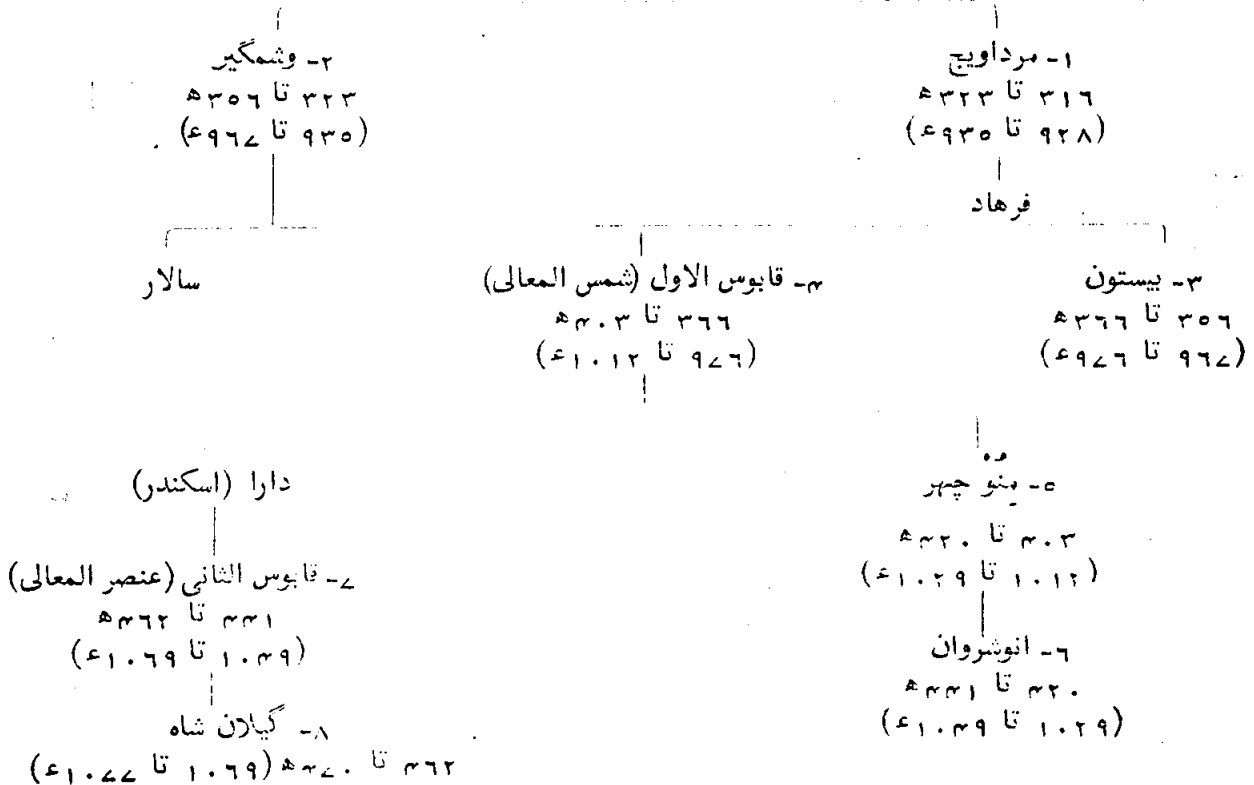 ۱- مرداویج
۳۱۶ تا ۳۲۳ھ
(۹۲۸ تا ۹۳۵ء)
۲- وشمگیر
۳۲۳ تا ۳۵۶ھ
(۹۳۵ تا ۹۶۷ء)
فرهاد
۳- بیستون
۳۵۶ تا ۳۶۶ھ
(۹۶۷ تا ۹۷۶ء)
۴- قابوس الاول (شمس المعالی)
۳۶۶ تا ۴۰۳ھ
(۹۷۶ تا ۱۰۱۲ء)
سالار
۵- منو چہر
۴۰۳ تا ۴۲۰ھ
(۱۰۱۲ تا ۱۰۲۹ء)
دارا (اسکندر)
۶- انوشروان
۴۲۰ تا ۴۴۱ھ
(۱۰۲۹ تا ۱۰۴۹ء)
۷- قابوس الثانی (عنصر المعالی)
۴۴۱ تا ۴۶۲ھ
(۱۰۴۹ تا ۱۰۶۹ء)
۸- گیلان شاہ
۴۶۲ تا ۴۷۰ھ (۱۰۶۹ تا ۱۰۷۷ء)